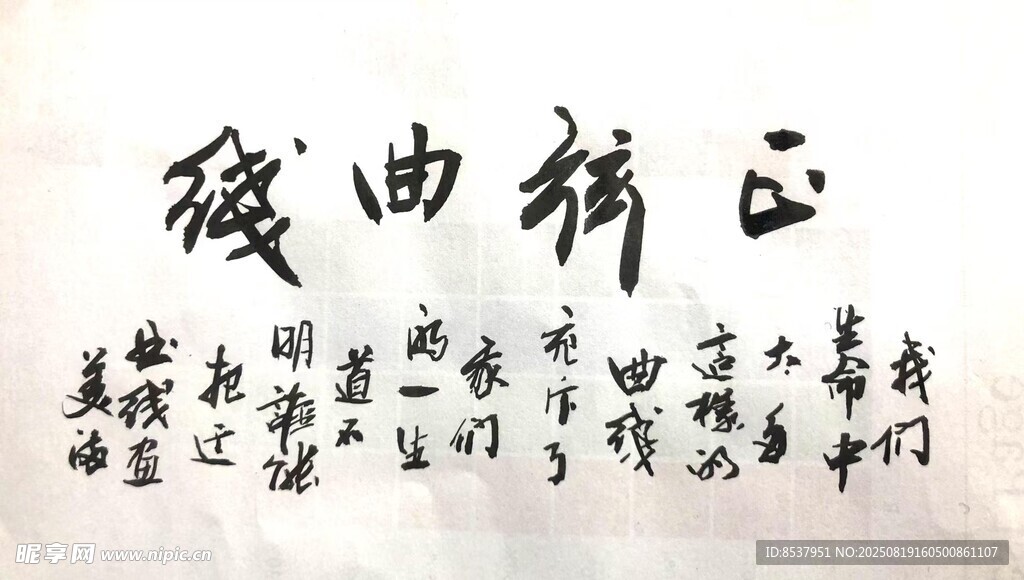 正弦曲线
我们
生命中
太多
這樣的
曲线
充斥了
我们
的一生
道不
明誰能
把这
曲线画
美满
昵享网 www.nipic.cn
ID:8537951 NO:20250819160500861107